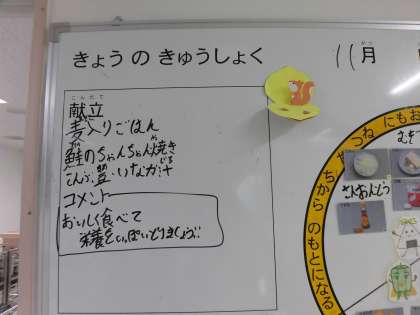 きょうのきゅうしょく
11月
がつ
こんだて
献立
麦入りごはん
鮭のちゃんちゃん焼き
こんぶ豆・いなか汁
じる
コメント
おいしく食べて
栄養をいっぱいとりましょう!!
ちから のもとになる
つねにもお
むぎ